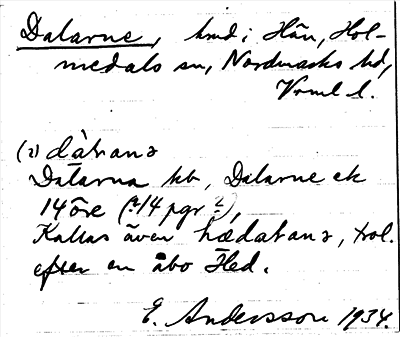 Dalarne, hmd i Hån, Hol-
medals sn, Nordmarks hd,
Vrml l.
(2) dàƚana
Dalarna kb, Dalarne ek
14 öre (?14 pgr?),
Kallas även hædaƚana, trol.
efter en åbo Hed.
E. Andersson 1934.